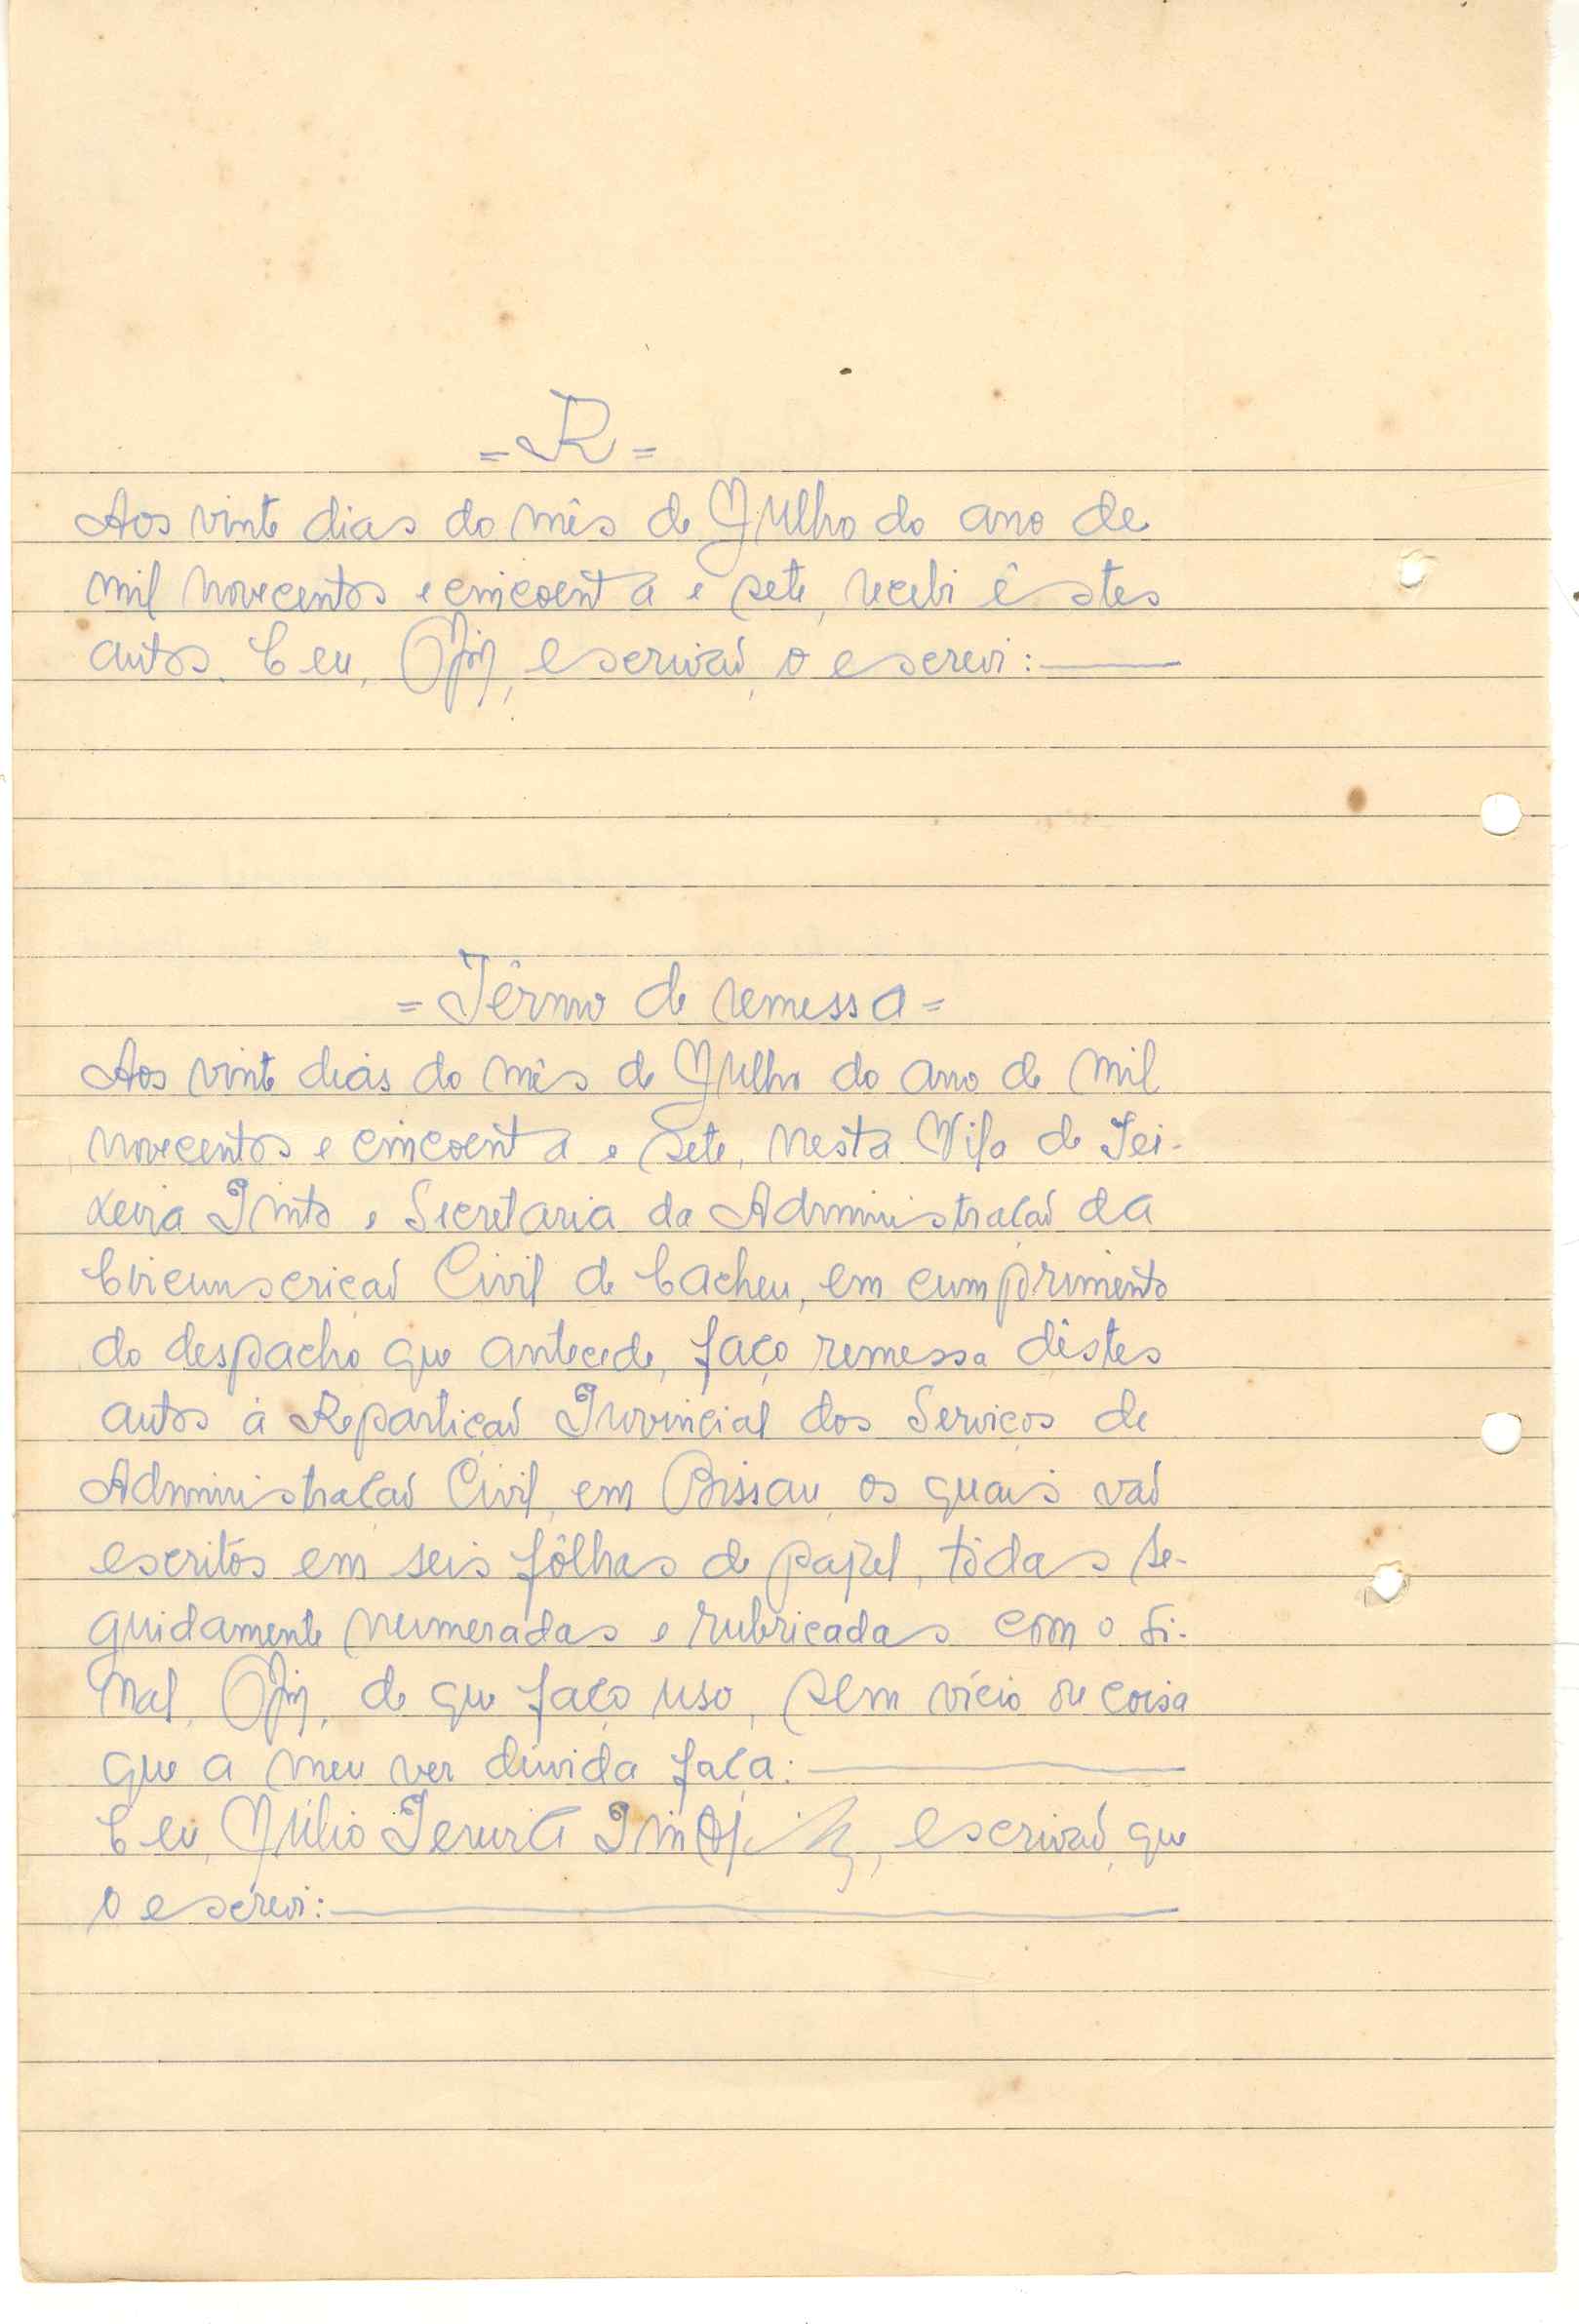 = R =
Aos vinte dias do mês de Julho do ano de
mil novecentos e cincoenta e sete, recebi êstes
autos. E eu, escrivão, o escrevi:
= Têrmo de remessa =
Aos vinte dias do mês de Julho do ano de mil
novecentos e cincoenta e sete, nesta Vila de Tei-
xeira Pinto e Secretaria da Administração da
Circunscrição Civil de Cacheu, em cumprimento
do despacho que antecede, faço remessa dêstes
autos à Repartição Provincial dos Serviços de
Administração Civil, em Bissau, os quais vão
escritos em seis fôlhas de papel, tôdas se-
guidamente numeradas e rubricadas com o si-
nal, de que faço uso, sem vício ou coisa
que a meu ver dúvida faça:
E eu, Júlio escrivão, que
o escrevi: